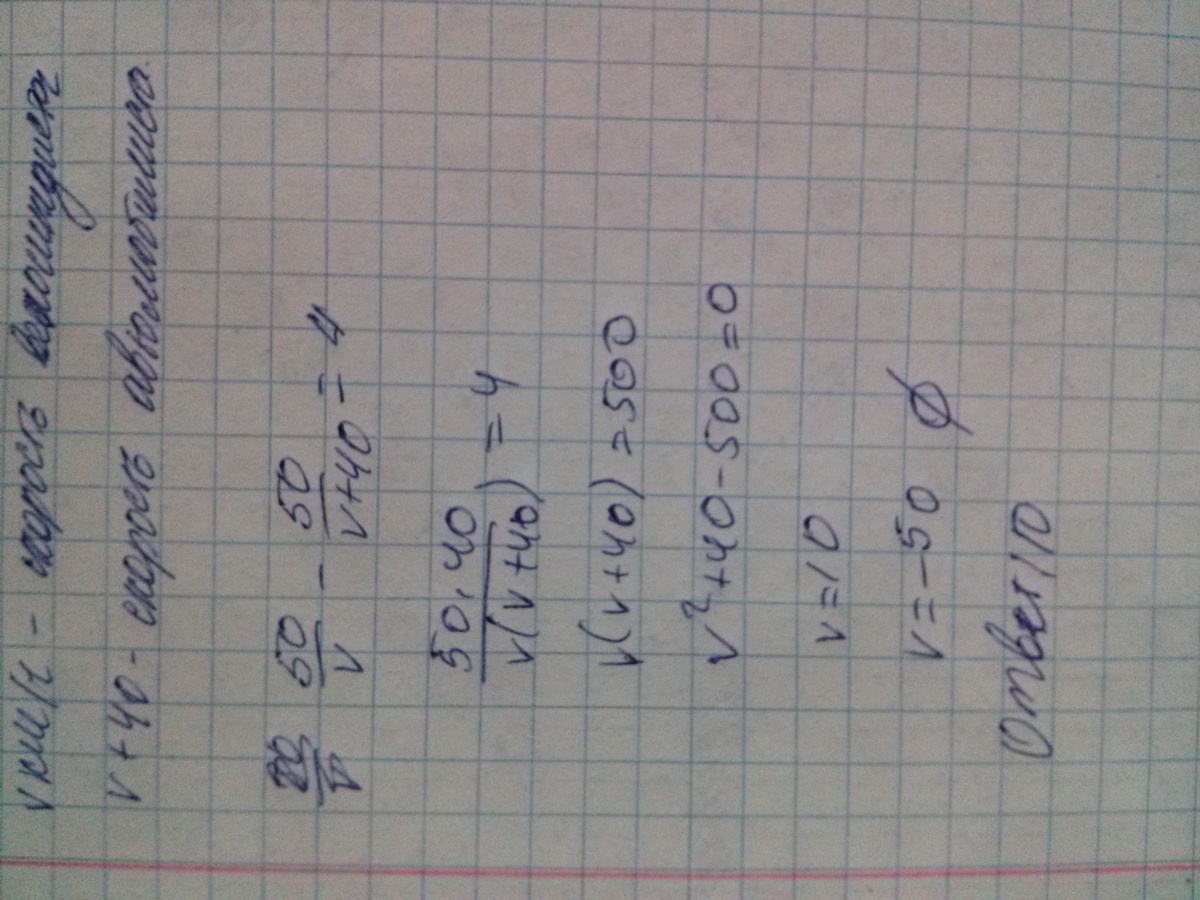 v км/ч - скорость велосипедиста
v+40 - скорость автомобиля
50/v - 50/v+40 = 4
50.40/v(v+40) = 4
v(v+40) = 500
v²+40-500=0
v=10
v=-50 ∅
Ответ 10